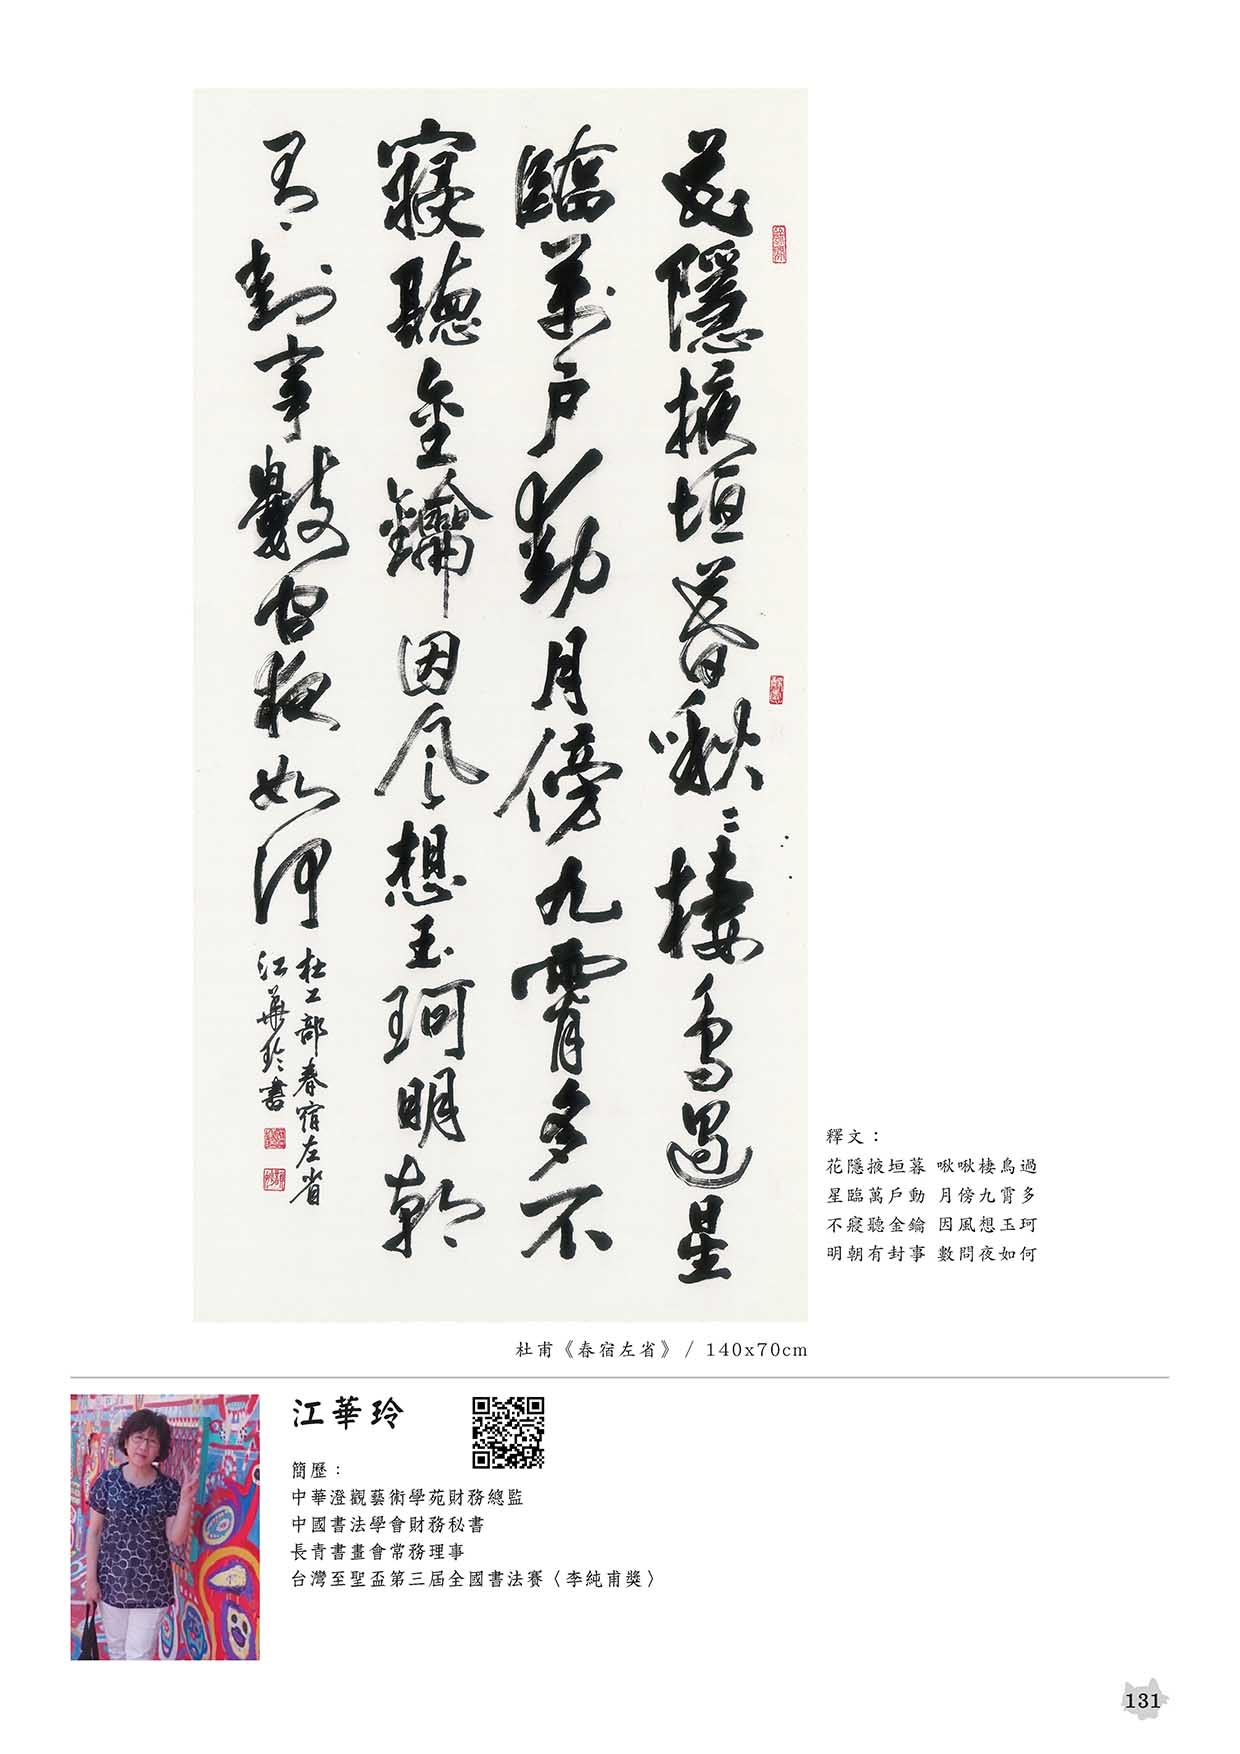 花隱掖垣暮啾〻棲鳥過星
臨萬戶動月傍九霄多不
寢聽金鑰因風想玉珂明朝
有封事數問夜如何
杜工部春宿左省
江華玲書
釋文：
花隱掖垣暮 啾啾棲鳥過
星臨萬戶動 月傍九霄多
不寢聽金鑰 因風想玉珂
明朝有封事 數問夜如何
杜甫《春宿左省》 / 140x70cm
江華玲
簡歷：
中華澄觀藝術學苑財務總監
中國書法學會財務秘書
長青書畫會常務理事
台灣至聖盃第三屆全國書法賽〈李純甫獎〉
131